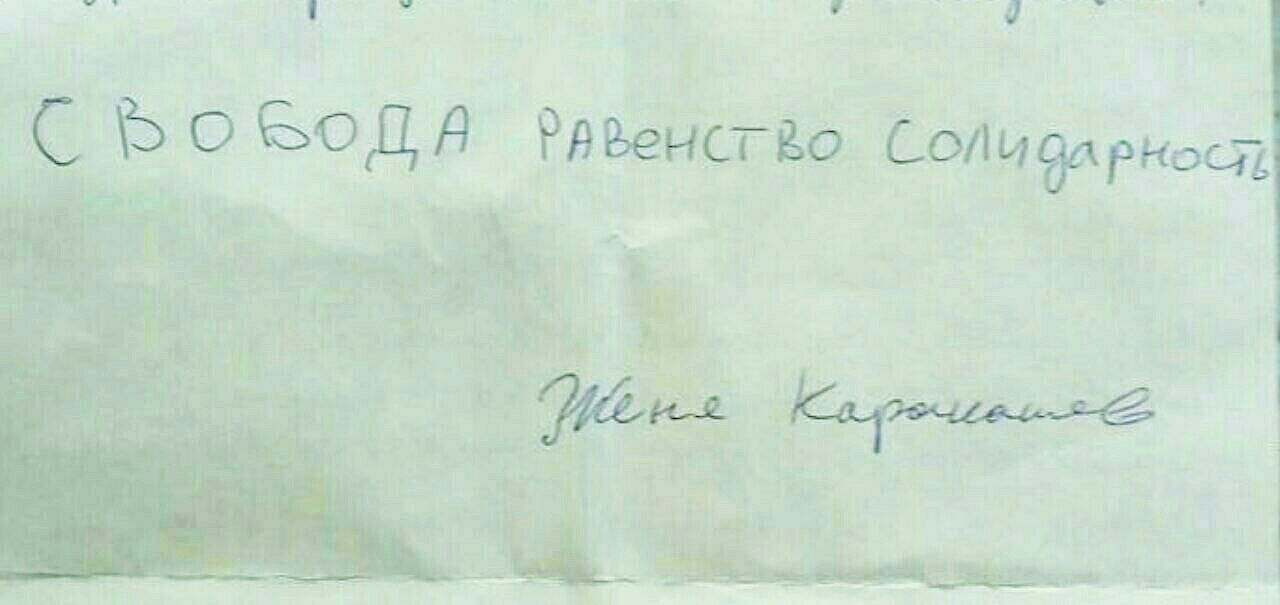 СВОБОДА РАВЕНСТВО СОЛИДАРНОСТЬ
Женя Каракашев